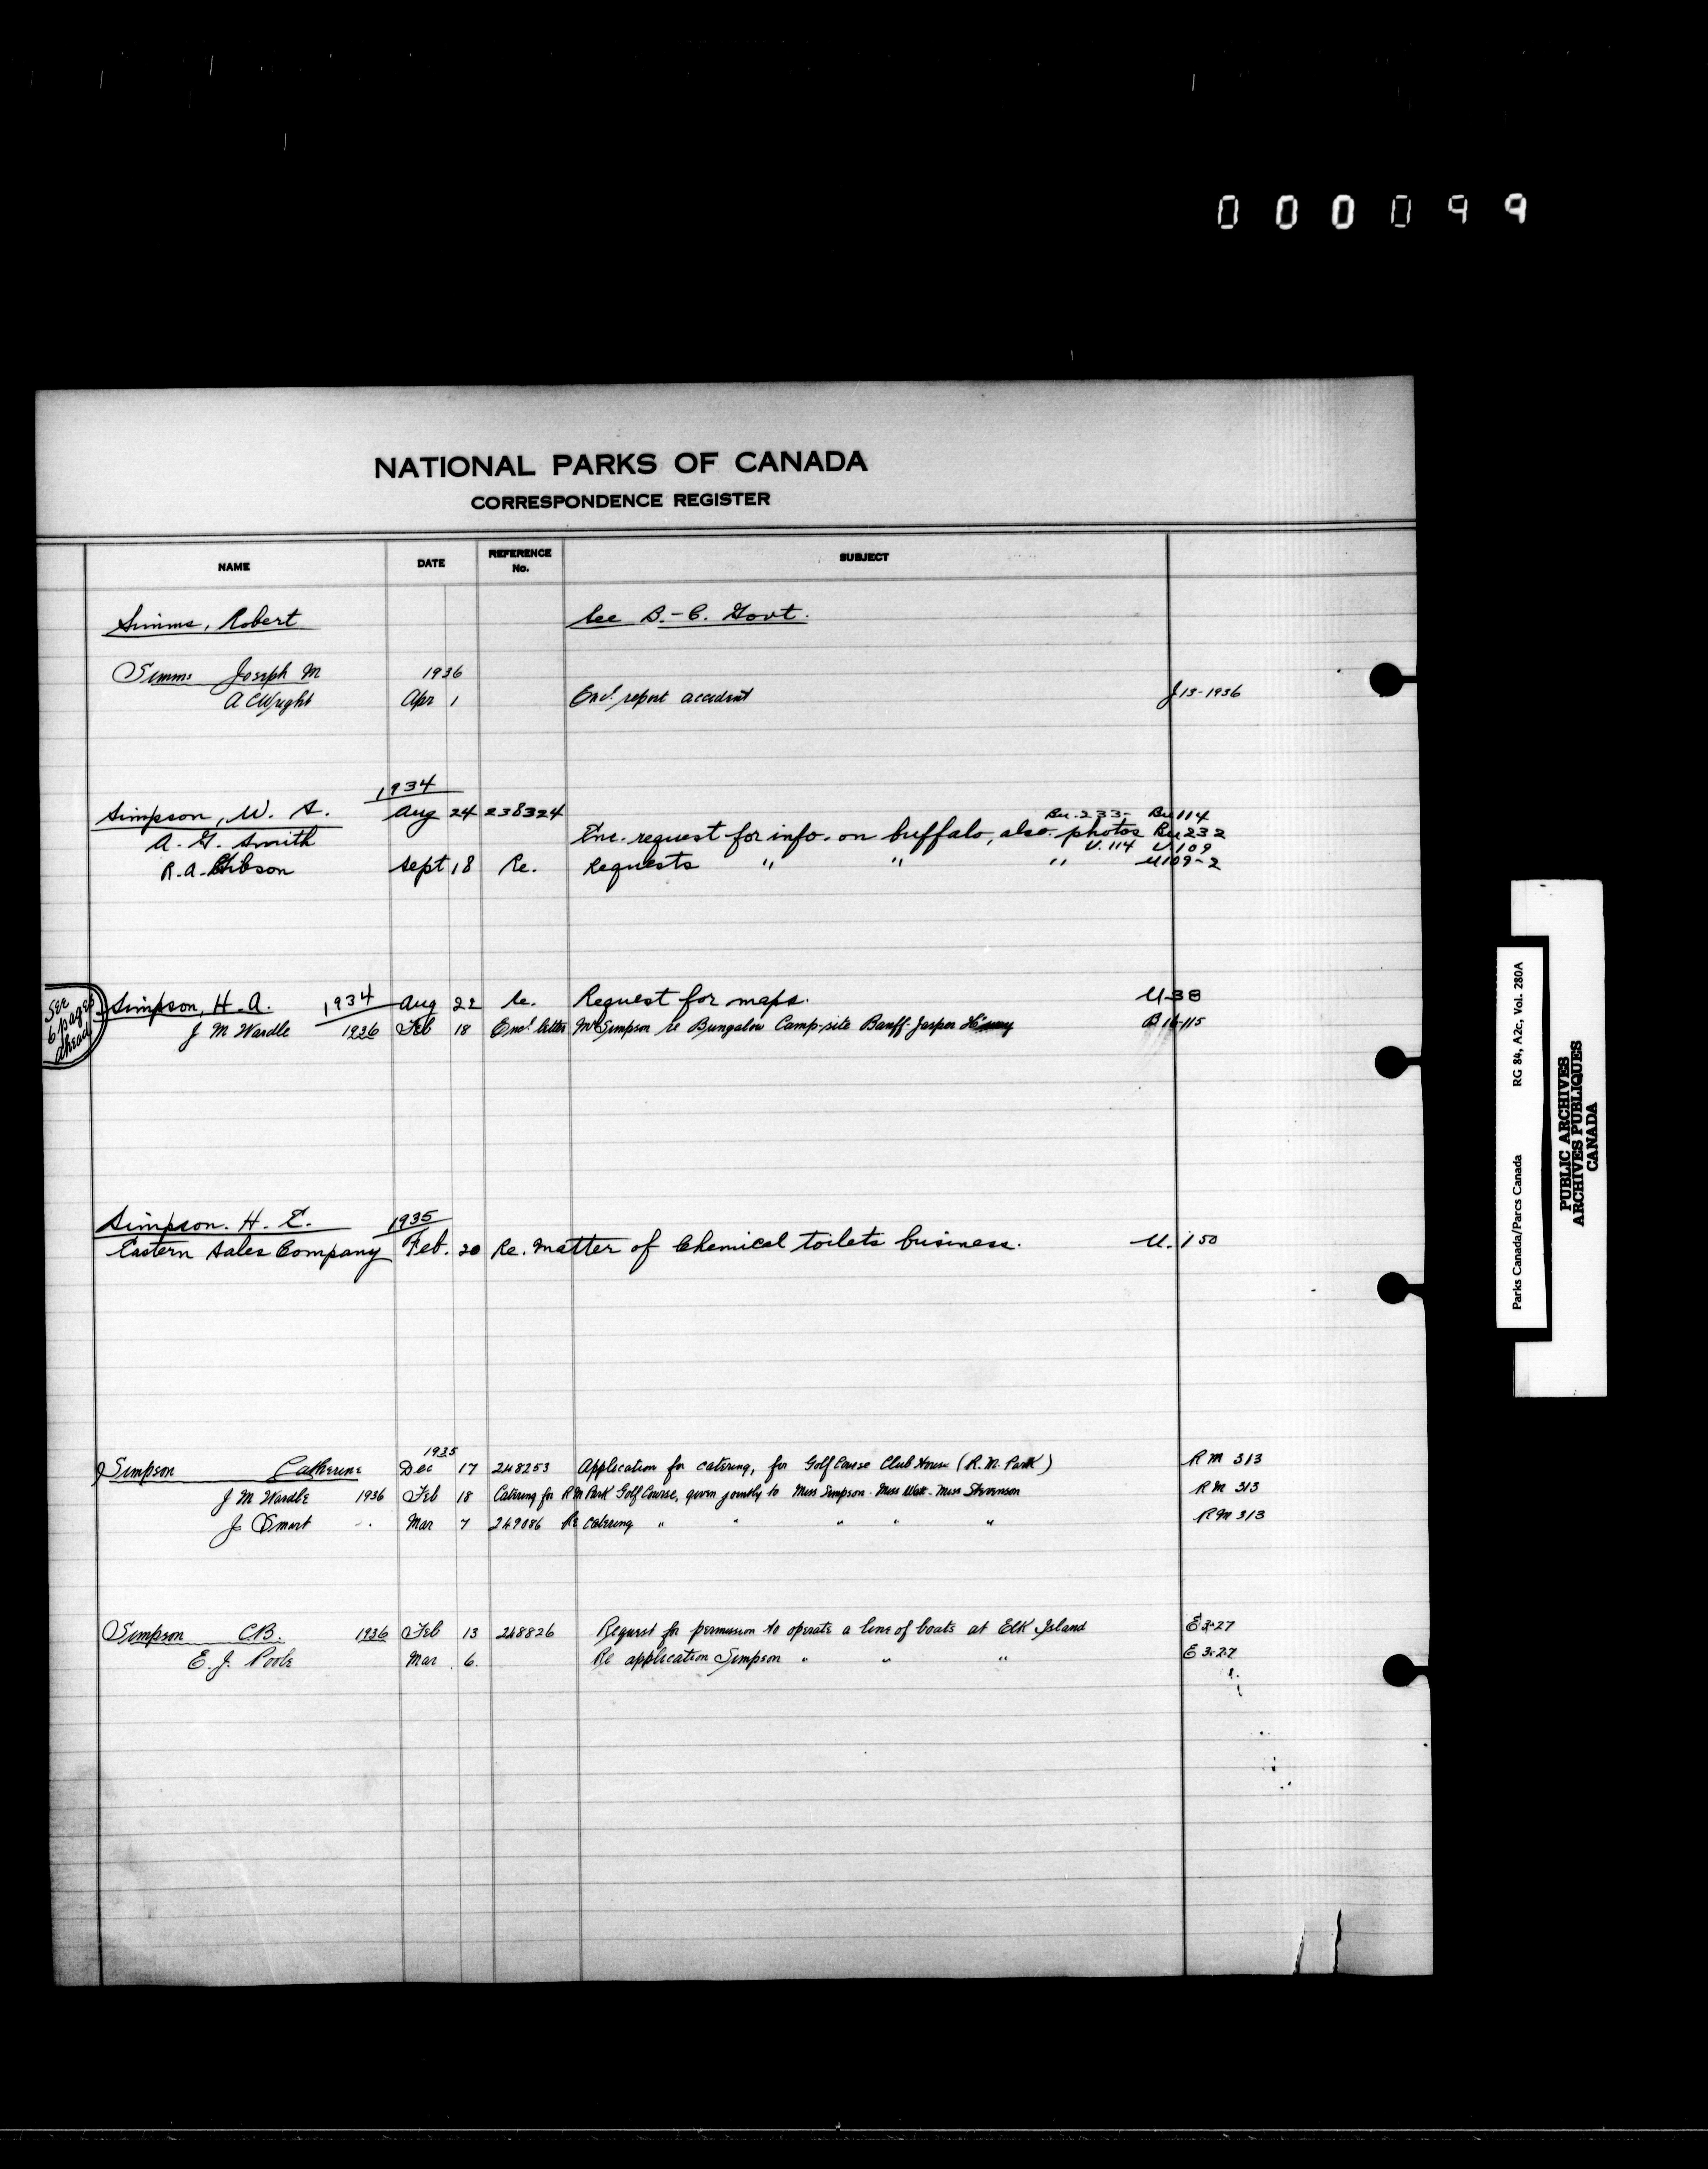 000099
NATIONAL PARKS OF CANADA
CORRESPONDENCE REGISTER
NAME DATE REFERENCE No. SUBJECT
Simms, Robert See B.-C. Govt.
Simms Joseph M 1936
A C Wright Apr 1 Encl. report accident J 13-1936
1934
Simpson, W. S. Aug 24 238324 Bu.233- Bu114
A. G. Smith Enc. request for info. on buffalo, also photos Bu232
U.114 U109
R.A. Gibson Sept 18 Re. Requests " " " U109-2
See 6 pages ahead
Simpson, H. A. 1934 Aug 22 Re. Request for maps. U-38
J M Wardle 1936 Feb 18 Encl letter Mr Simpson re Bungalow Camp-site Banff-Jasper B 16-115
Simpson. H. E. 1935
Eastern Sales Company Feb. 20 Re. matter of Chemical toilets business. U.150
1935
Simpson Catherine Dec 17 248253 Application for catering, for Golf Course Club House (R.M. Park) RM 313
J M Wardle 1936 Feb 18 Catering for RM Park Golf Course, given jointly to Miss Simpson - Miss Watt - Miss Stevenson RM 313
J Smart " Mar 7 249086 Re catering " " " " " RM 313
Simpson C.B. 1936 Feb 13 248826 Request for permission to operate a line of boats at Elk Island E 3-27
E. J. Poole Mar. 6. Re application Simpson " " " E 3-27
Parks Canada/Parcs Canada RG 84, A2c, Vol. 280A
PUBLIC ARCHIVES
ARCHIVES PUBLIQUES
CANADA